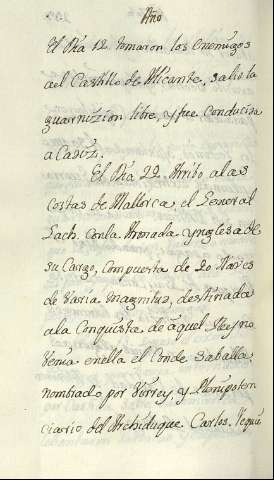 Año
El Dia 12 tomaron los Enemigos
ael Castillo de Alicante, salio la
guarnizion libre, y fue conducida
a Cadiz.
El Dia 22 Arribo a las
costas de Mallorca el General
Lach, con la Armada ynglesa de
su Cargo, compuesta de 20 Naves
de Varia magnitud, destinada
a la Conquista de aquel Reyno
Venia en ella el Conde Saballa,
nombrado por Virrey, y Plenipoten
ciario del Archiduque Carlos,